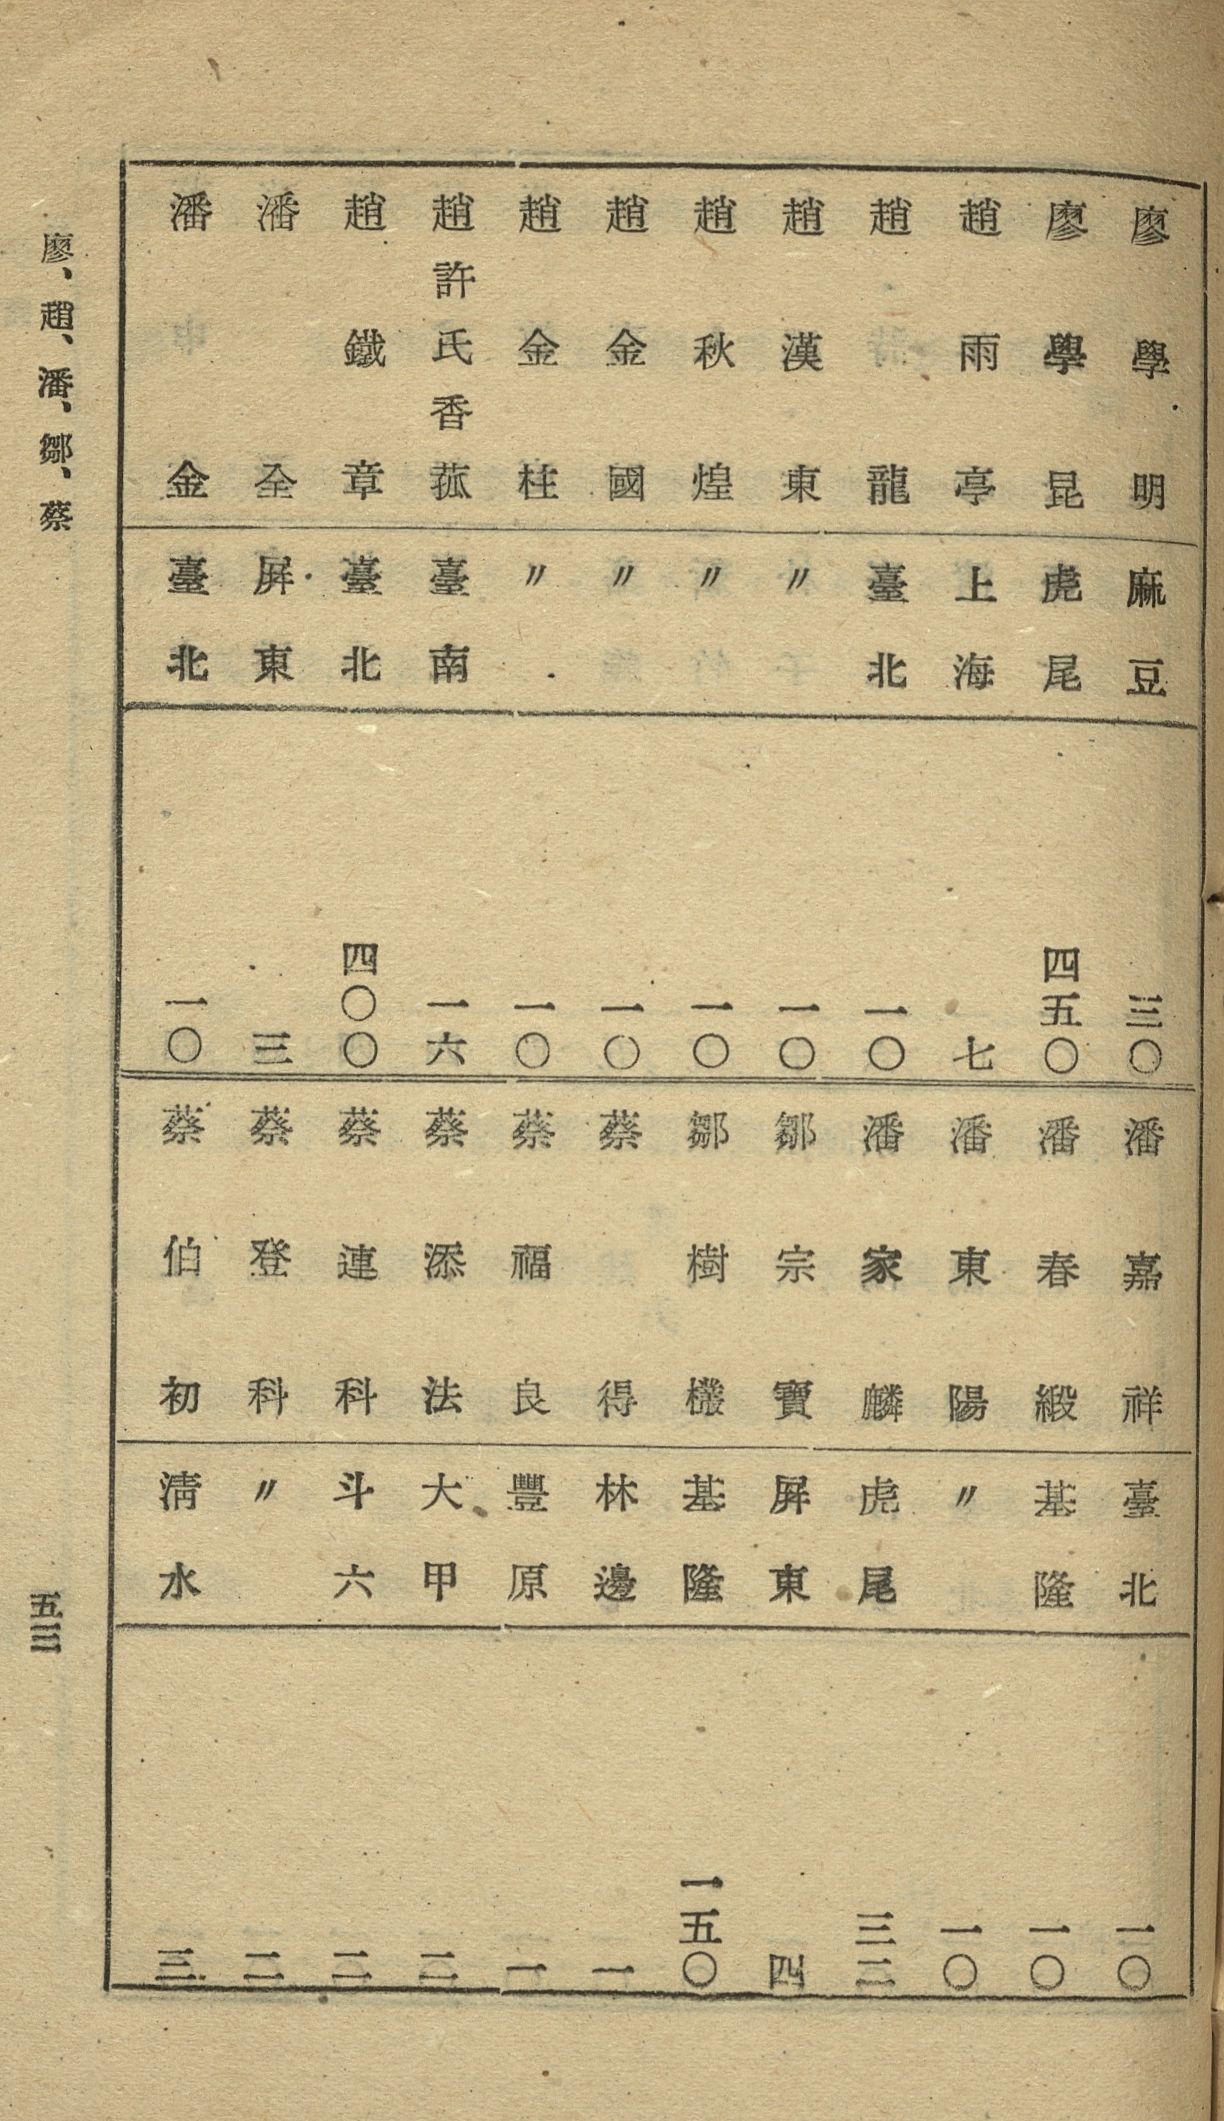 廖學明 麻豆 三〇
廖學昆 虎尾 四五〇
趙雨亭 上海 七
趙龍 臺北 一〇
趙漢東 〃 一〇
趙秋煌 〃 一〇
趙金國 〃 一〇
趙金柱 〃 一〇
趙許氏香菰 臺南 一六
趙鐵章 臺北 四〇〇
潘全 屏東 三
潘金 臺北 一〇
潘嘉祥 臺北 一〇
潘春緞 基隆 一〇
潘東陽 〃 一〇
潘家麟 虎尾 三二
鄒宗寶 屏東 四
鄒樹機 基隆 一五〇
蔡得 林邊 一
蔡福良 豐原 一
蔡添法 大甲 二
蔡連科 斗六 二
蔡登科 〃 二
蔡伯初 淸水 三
廖、趙、潘、鄒、蔡
五三